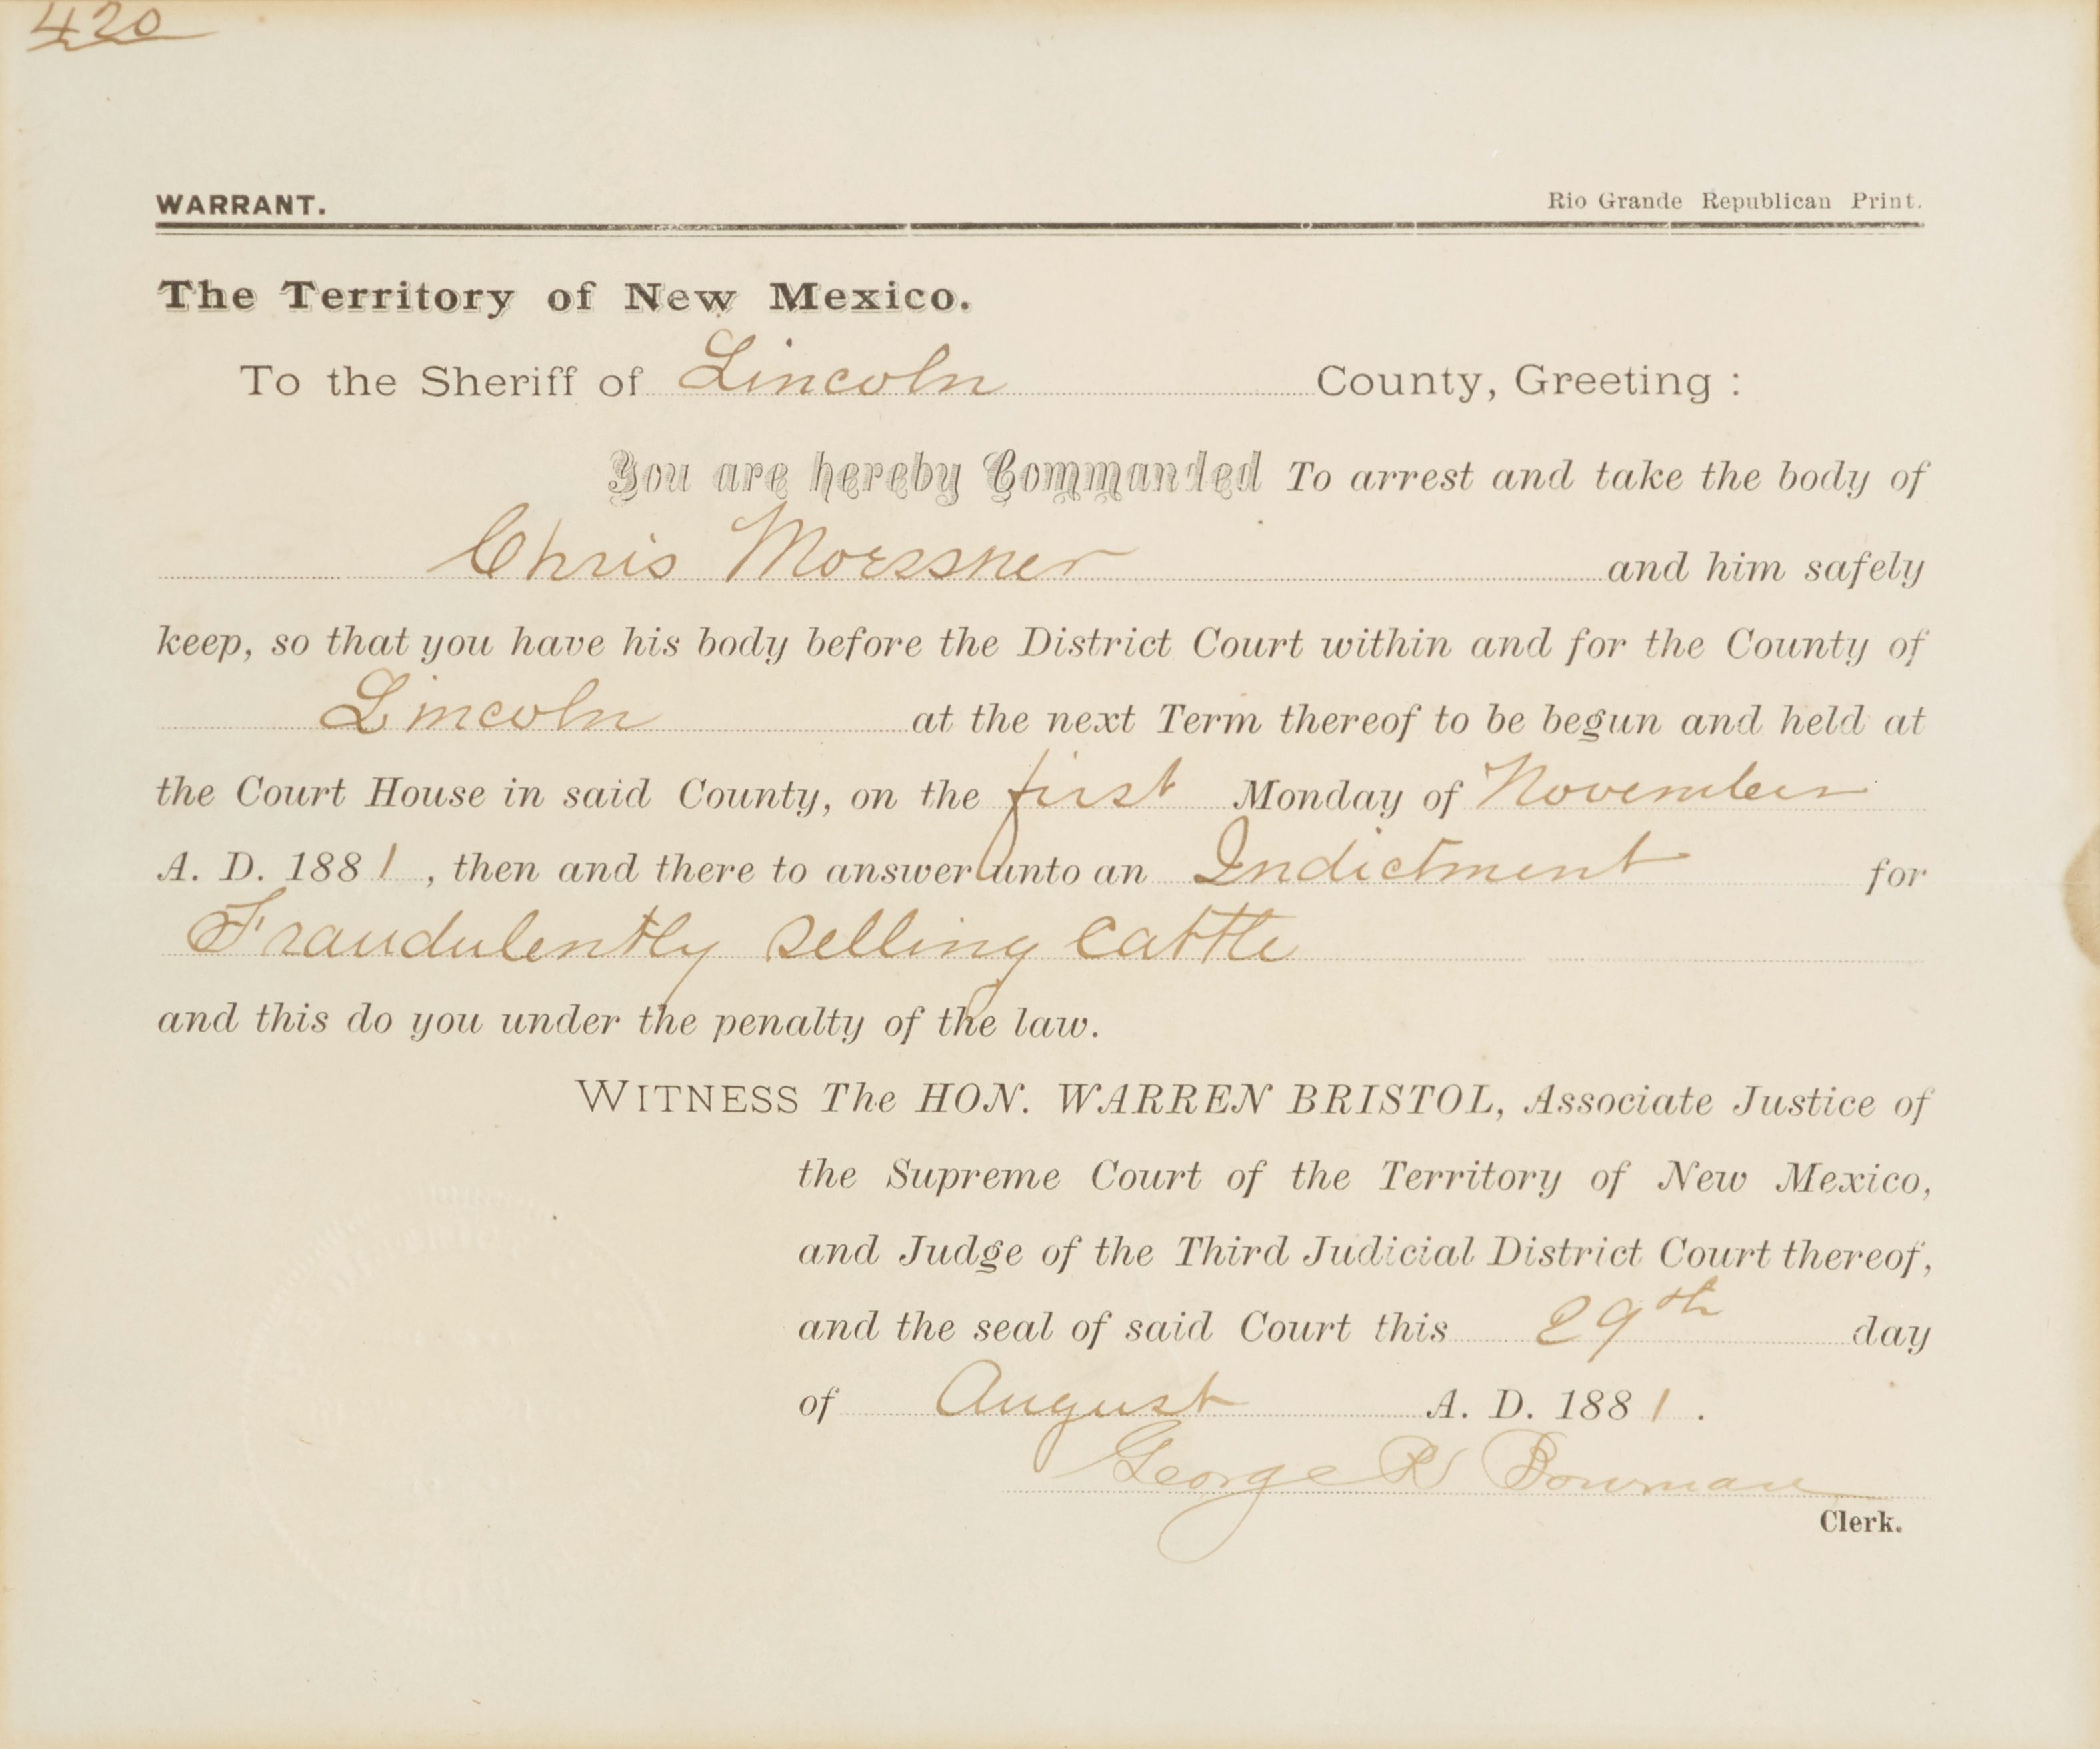 420
WARRANT. Rio Grande Republican Print.
The Territory of New Mexico.
To the Sheriff of Lincoln County, Greeting :
You are hereby Commanded To arrest and take the body of
Chris Moessner and him safely
keep, so that you have his body before the District Court within and for the County of
Lincoln at the next Term thereof to be begun and held at
the Court House in said County, on the first Monday of November
A. D. 1881, then and there to answer unto an Indictment for
Fraudulently selling cattle
and this do you under the penalty of the law.
WITNESS The HON. WARREN BRISTOL, Associate Justice of
the Supreme Court of the Territory of New Mexico,
and Judge of the Third Judicial District Court thereof,
and the seal of said Court this 29th day
of August A. D. 1881.
George R Bowman
Clerk.